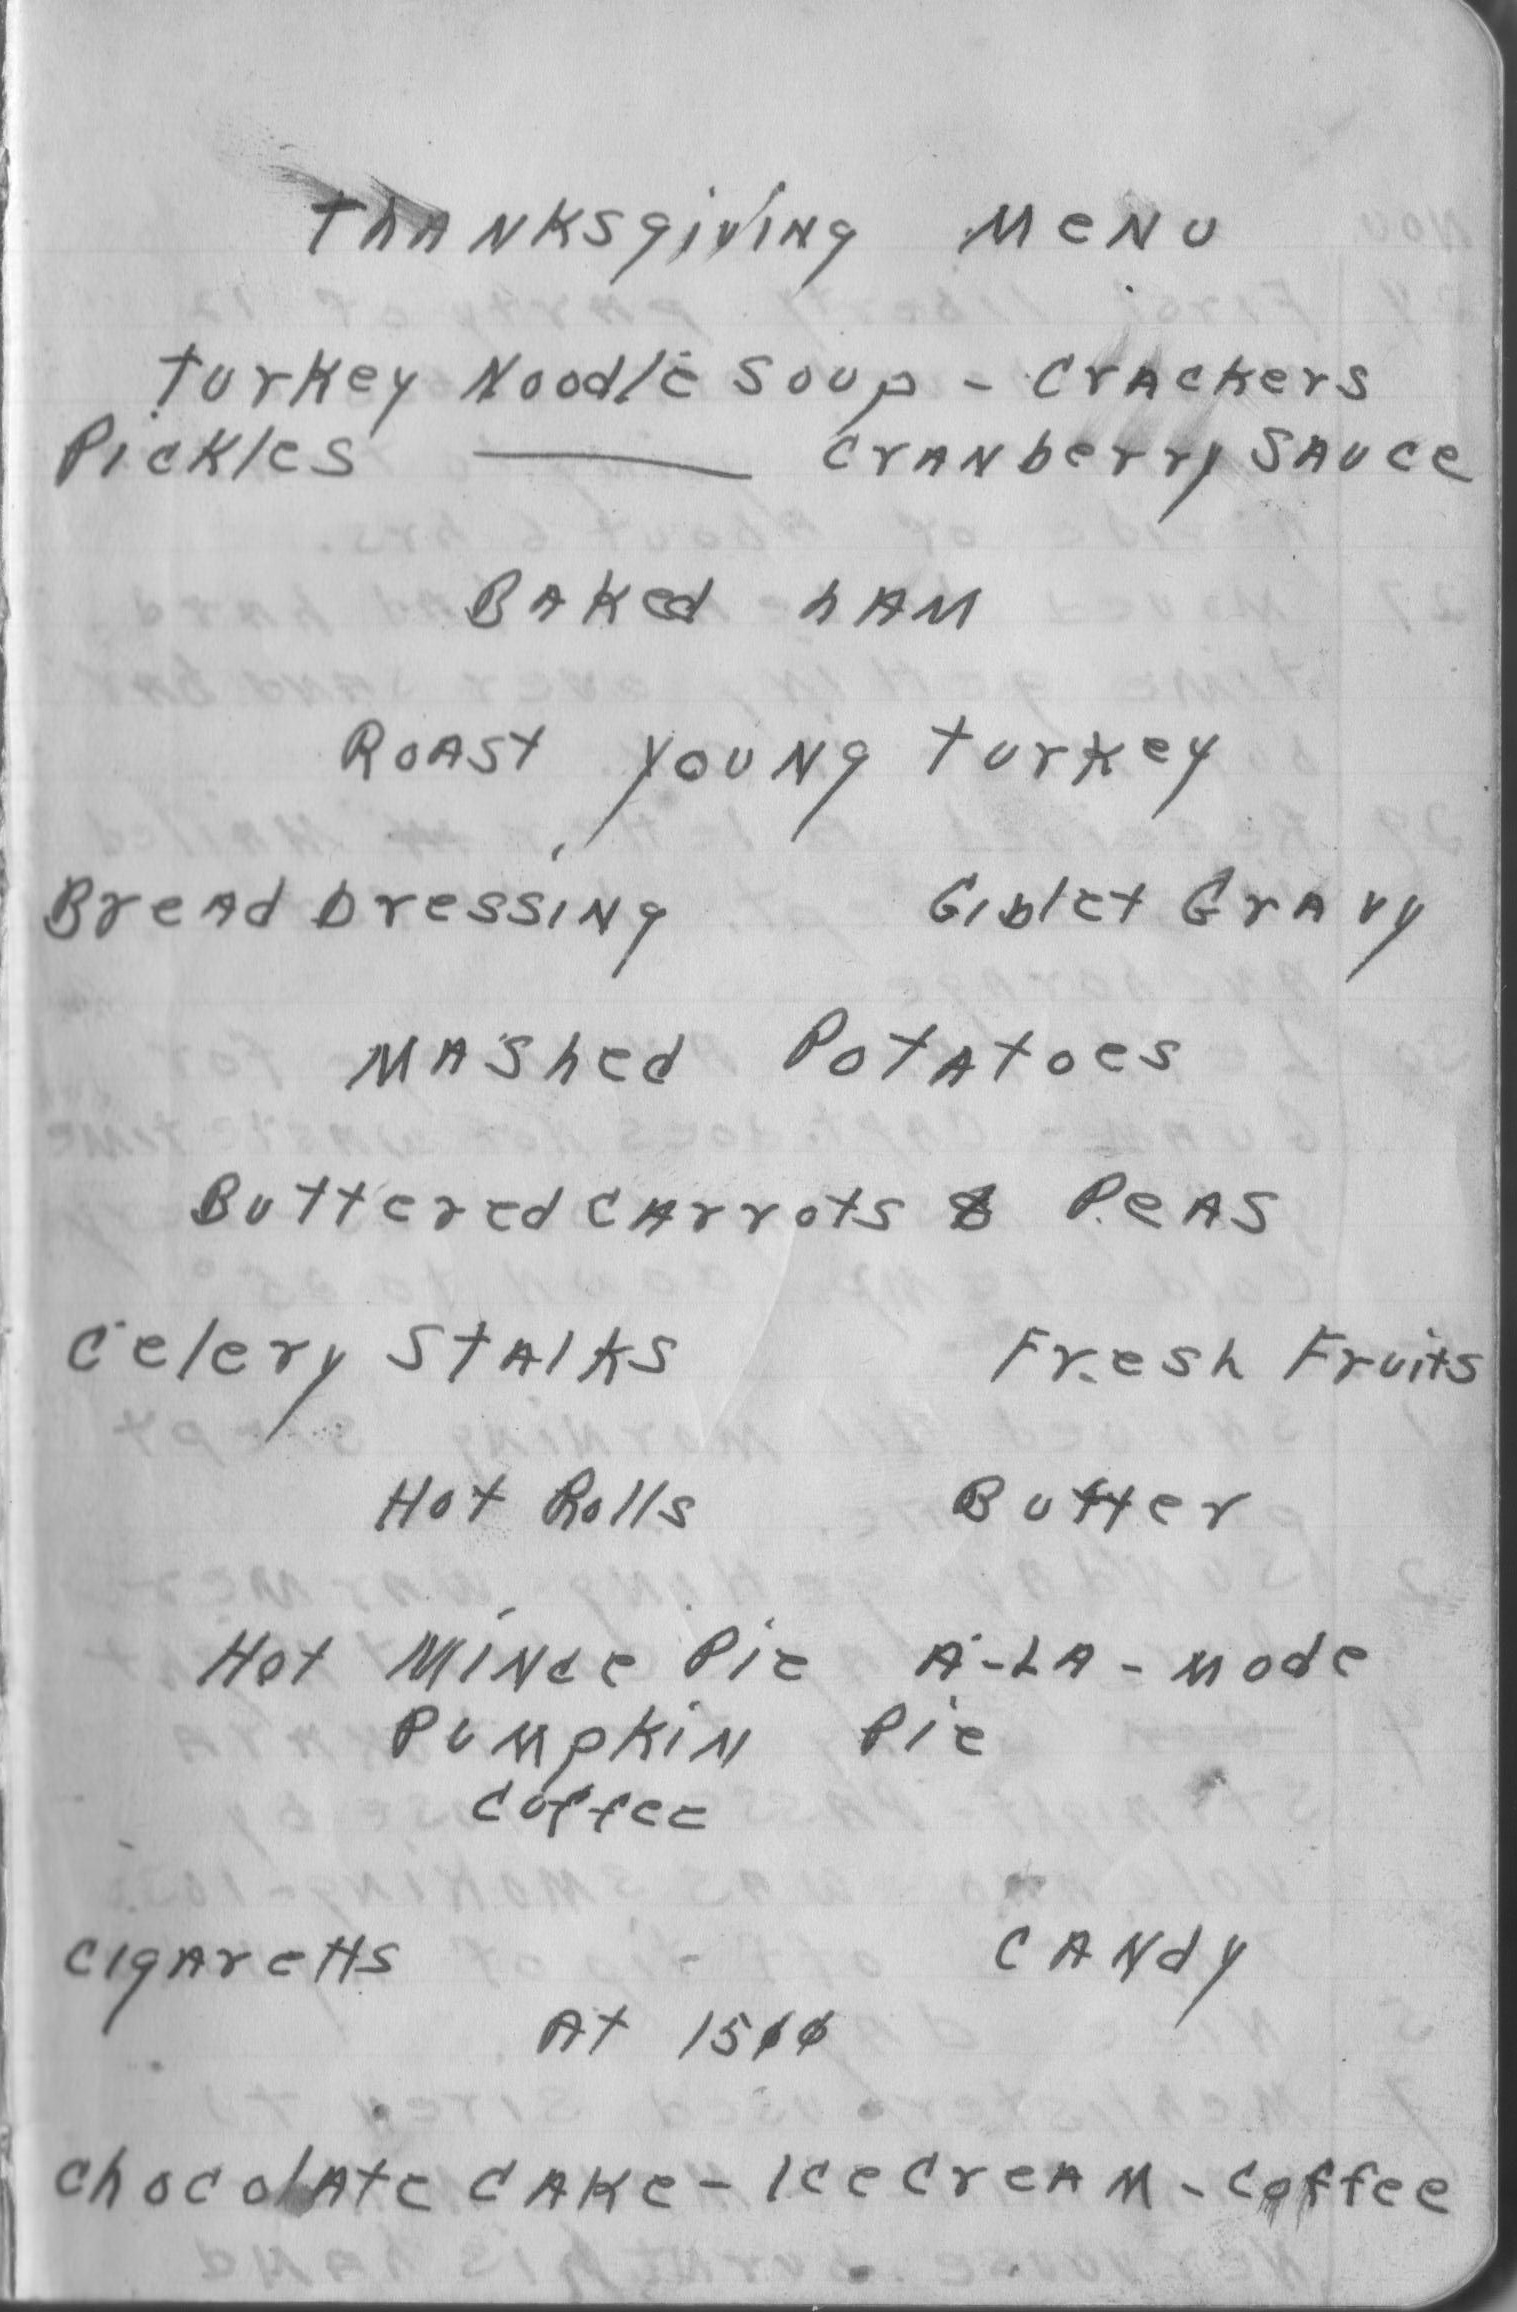 Thanksgiving Menu
Turkey Noodle Soup - Crackers
Pickles — Cranberry Sauce
Baked ham
Roast young turkey
Bread Dressing Giblet Gravy
Mashed Potatoes
Buttered Carrots & Peas
Celery Stalks Fresh Fruits
Hot Rolls Butter
Hot Mince Pie A-LA-mode
Pumpkin Pie
Coffee
Cigaretts Candy
At 1500
Chocolate Cake - Ice Cream - Coffee